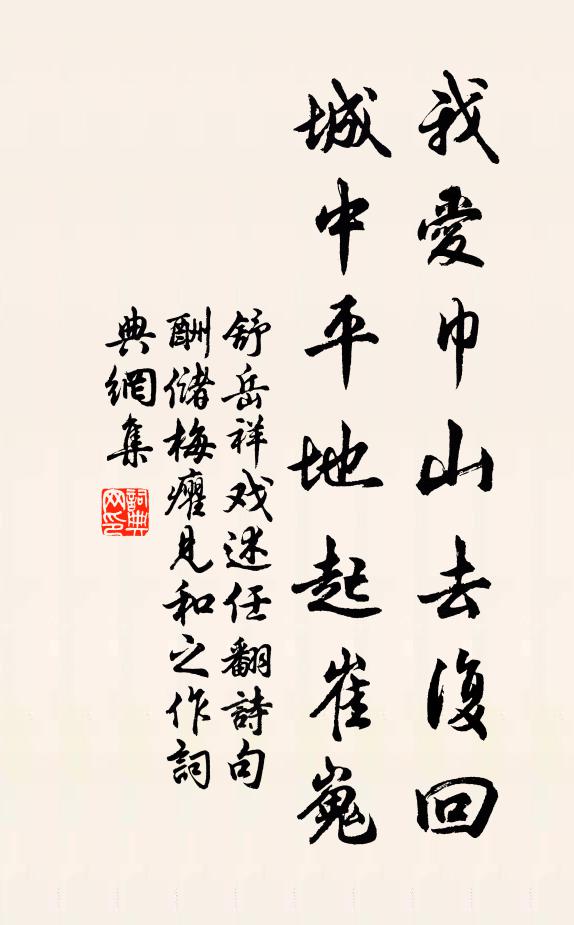 我愛巾山去復回
城中平地起崔嵬
舒岳祥戏述任翻詩句
酬儲梅癯見和之作詞
典網集
詞典
网印